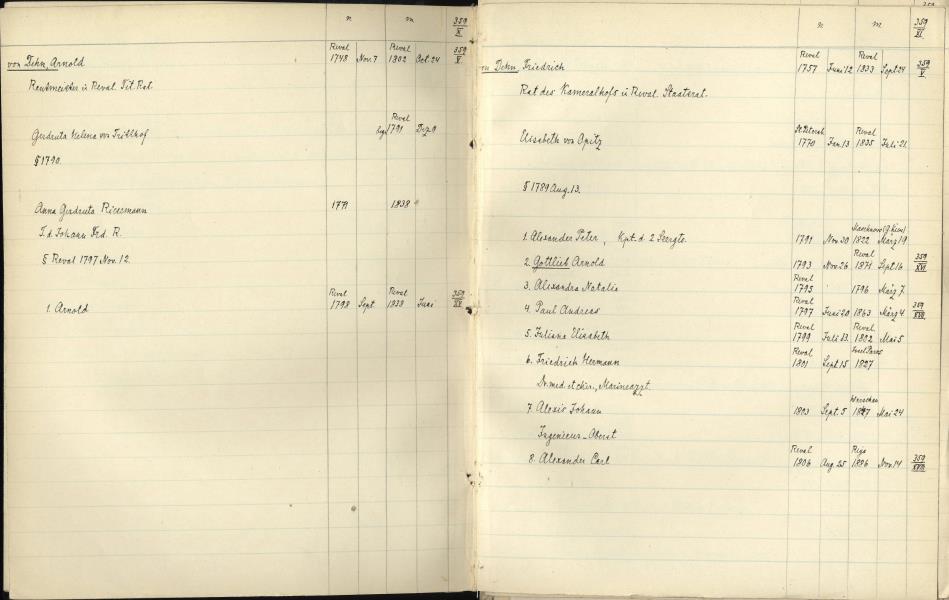 n m 359 X
von Dehn, Arnold Reval 1748 Nov. 7 Reval 1802 Oct. 24 359 V.
Rentmeister u Reval. Tit. Rat.
Gerdruta Helena von Reval 1791 Dez 9
§ 1790.
Anna Gerdruta Ricermann 1771 1838
T. d. Johann Fed. R.
§ Reval 1797 Nov. 12.
1. Arnold Reval 1798 Sept Reval 1838 Juni 359 XV
359
n m 359 XI
von Dehn, Friedrich Reval 1757 Juni 12 Reval 1833 Sept 24 359 V.
Rat des Kameralhofs u Reval. Staatsrat.
Elisabeth von Opitz St. Petersb 1770 Jan. 13 Reval 1835 Juli 21
§ 1789 Aug. 13.
1. Alexander Peter, Kpt. d. 2 Seergts. 1791 Nov. 30 1822 März 19
2. Gottlieb Arnold 1793 Nov. 26 Reval 1871 Sept 16 359 XVI
3. Alexandra Natalie Reval 1795 1796 März 7.
4. Paul Andreas Reval 1797 Juni 20 1863 März 4. 359 XVII
5. Juliane Elisabeth Reval 1799 Juli 23. Reval 1802 Mai 5
6. Friedrich Hermann Reval 1801 Sept. 15 Insel Paros 1827
Dr. med. et chir., Marinearzt.
7. Alexis Johann 1803 Sept. 5 Warschau Mai 24
Ingenieur-Oberst
8. Alexander Carl Reval 1806 Aug. 25 Riga 1886 Nov. 14 359 XVIII